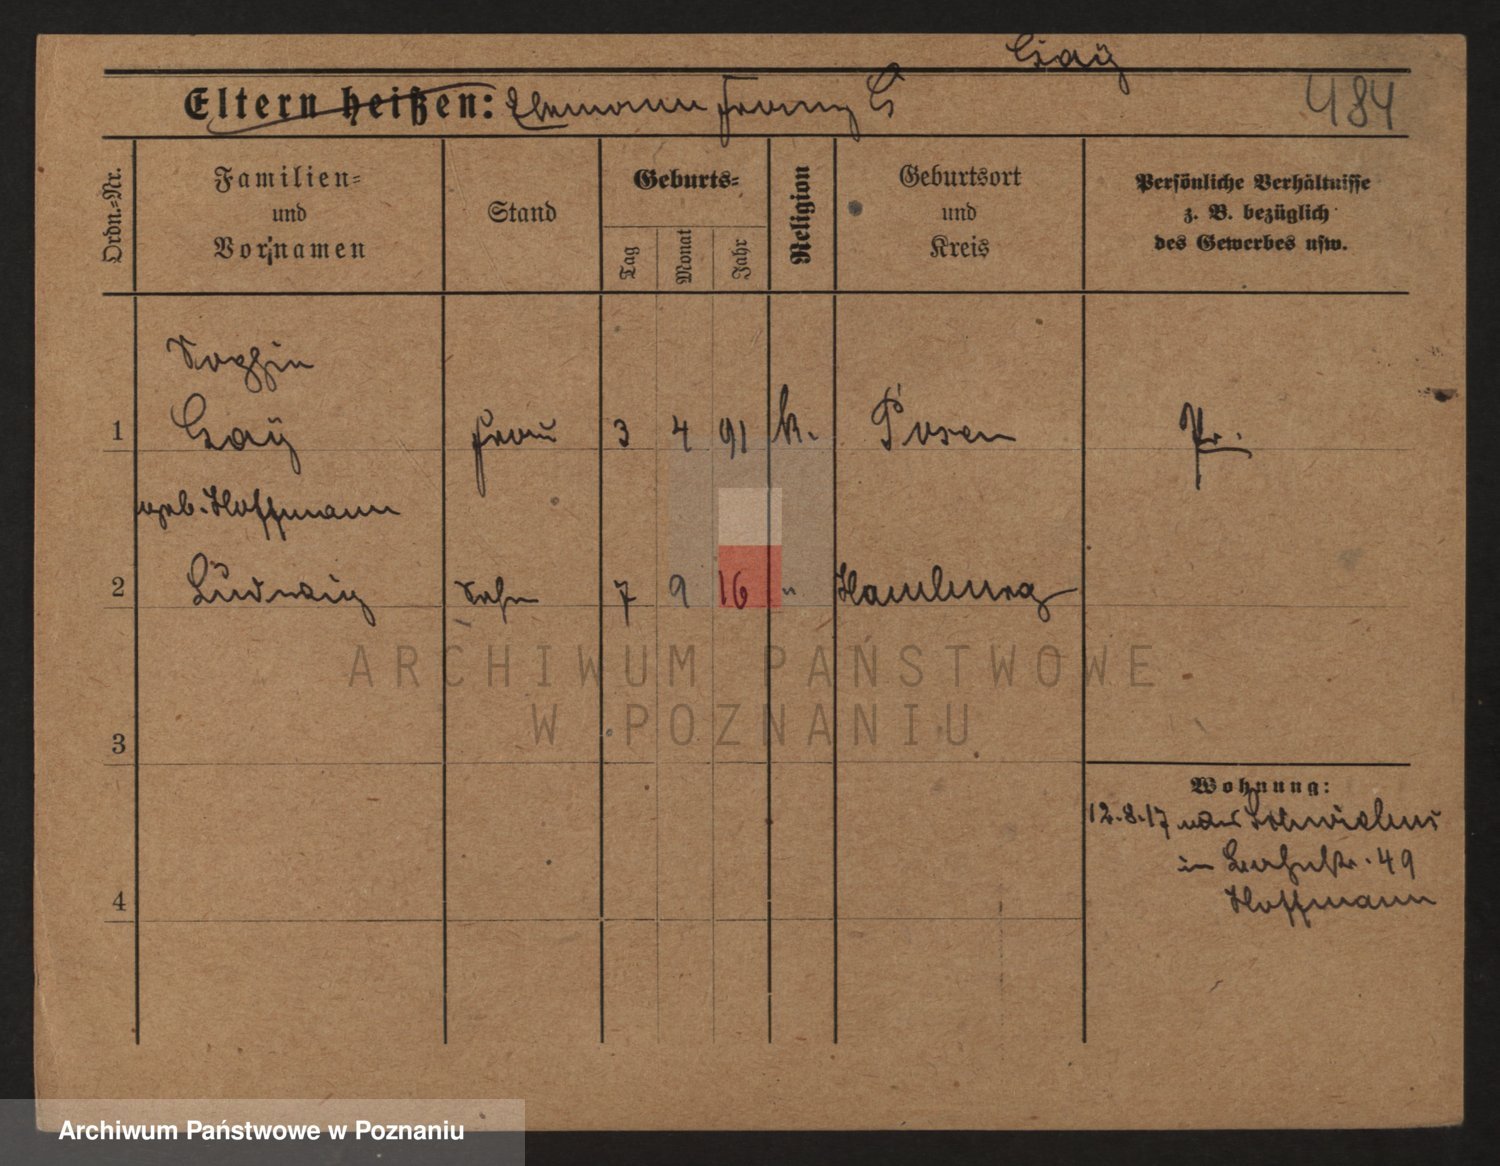 Gaÿ
Eltern heißen: Ehemann Franz G
484
Ordn.-Nr.
Familien-
und
Vornamen
Stand
Geburts-
Tag
Monat
Jahr
Religion
Geburtsort
und
Kreis
Persönliche Verhältnisse
z. B. bezüglich
des Gewerbes usw.
Sophie
1 Gaÿ Frau 3 4 91 k. Posen Pr.
geb. Hoffmann
2 Ludwig Sohn 7 9 16 " Hamburg
3
4
Wohnung:
12.8.17
in 49
Hoffmann
ARCHIWUM PAŃSTWOWE
W POZNANIU
Archiwum Państwowe w Poznaniu